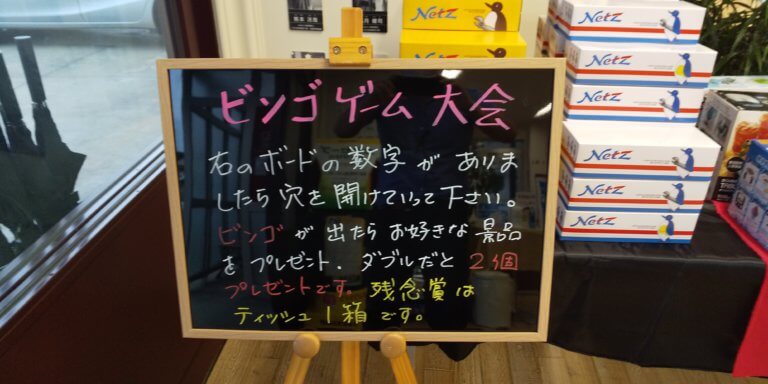 ビンゴゲーム大会
右のボードの数字がありま
したら穴を開けていって下さい。
ビンゴが出たらお好きな景品
をプレゼント。ダブルだと2個
プレゼントです。残念賞は
ティッシュ1箱です。
Netz
Netz
Netz
Netz
Netz
Netz
Netz
Netz